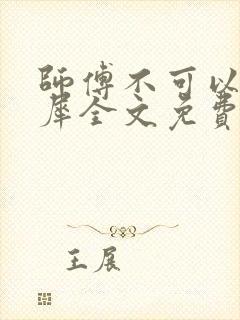 師傅不可以
犀全文免費
王展